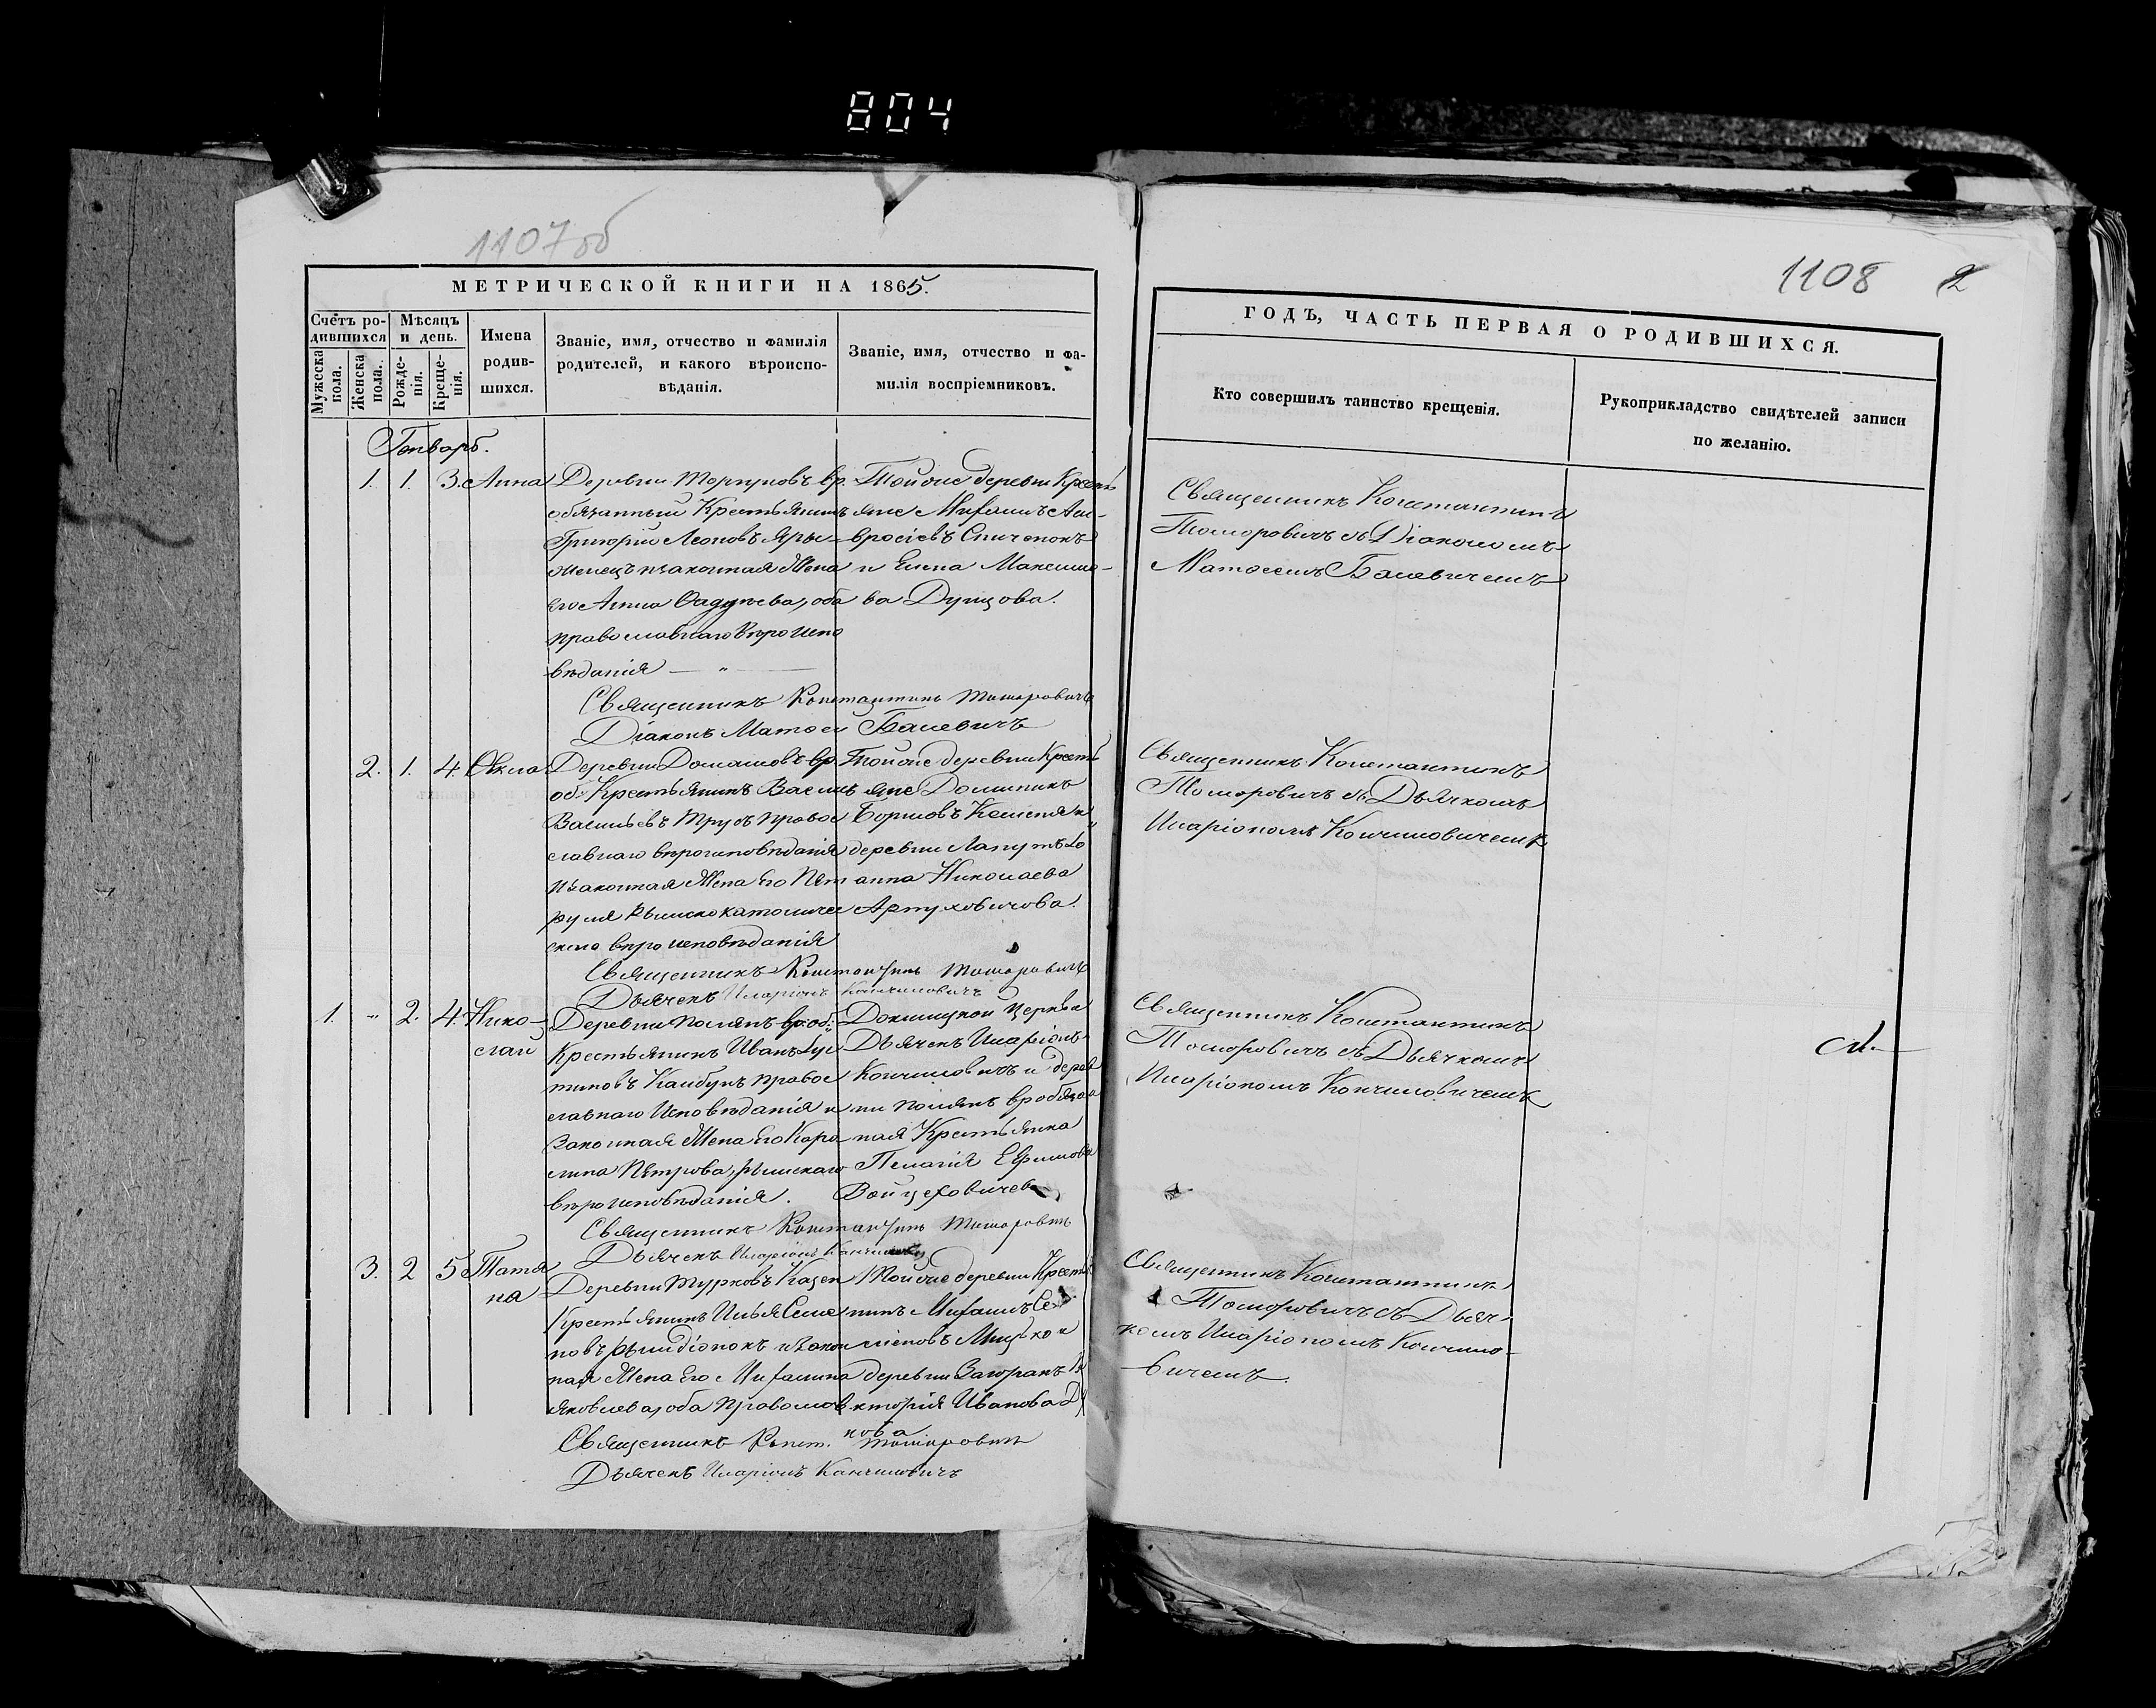 804
1107об
МЕТРИЧЕСКОЙ КНИГИ НА 1865.
Счётъ ро-
дившихся
Мѣсяцъ
и день.
Мужеска
пола.
Женска
пола.
Рожде-
нія.
Креще-
нія.
Имена
родив-
шихся.
Званіе, имя, отчество и фамилія
родителей, и какого вѣроиспо-
вѣданія.
Званіе, имя, отчество и фа-
милія воспріемниковъ.
Генварь.
1. 1. 3. Анна
Деревни вр.
обязанный Крестьянинъ
Григорій Леоновъ
законная Жена
его Анна Фадѣева, оба
православнаго вѣроиспо
вѣданія — " —
Тойже деревни Кресть
яне
вросіевъ
и Елена Максимо-
ва
Священникъ Константинъ Томоровичъ
Діаконъ Матѳей
2. 1. 4. Ѳекла
Деревни Домашовъ вр.
об: Крестьянинъ Васил
Васильевъ Трусъ правос
славнаго вѣроисповѣданія
и законная Жена Его Пет
руся Римскокатоличес
скаго вѣроисповѣданія
Тойже деревни Кресть
яне Доминикъ
деревни
анна Николаева
Артуховичова.
Священникъ Константинъ Томоровичъ
Дьячекъ Иларіонъ Кончиловичъ
1. " 2. 4. Нико-
лай
Деревни Полянъ вр:об:
Крестьянинъ Иванъ Гус
тиновъ Кайбунъ правос
славнаго Исповѣданія и
Законная Жена Его Каро
лина Петрова, римскаго
вѣроисповѣданія.
Докшицкой Церкви
Дьячекъ Иларіонъ
Кончиловичъ и дерев
ни Полянъ вробязан
ная Крестьянка
Пелагія Ефимова
Войцеховичева
Священникъ Константинъ Томоровичъ
Дьячекъ Иларіонъ Кончиловичъ
3. 2 5 Татья
на
Деревни Турковъ Казен
Крестьянинъ Илья Семе
новъ и закон
ная Жена Его
Яковлева, оба Православ.
Тойже деревни Кресть
нинъ
деревни
кторія Иванова
нова
Священникъ Конст. Томоровичъ
Дьячекъ Иларіонъ Кончиловичъ
1108 2
ГОДЪ, ЧАСТЬ ПЕРВАЯ О РОДИВШИХСЯ.
Кто совершилъ таинство крещенія.
Рукоприкладство свидѣтелей записи
по желанію.
Священникъ Константинъ
Томоровичъ съ Діакономъ
Священникъ Константинъ
Томоровичъ съ Дьячкомъ
Иларіономъ Кончиловичемъ
Священникъ Константинъ
Томоровичъ съ Дьячкомъ
Иларіономъ Кончиловичемъ
Священникъ Константинъ
Томоровичъ съ Дьяч-
комъ Иларіономъ Кончило-
вичемъ.